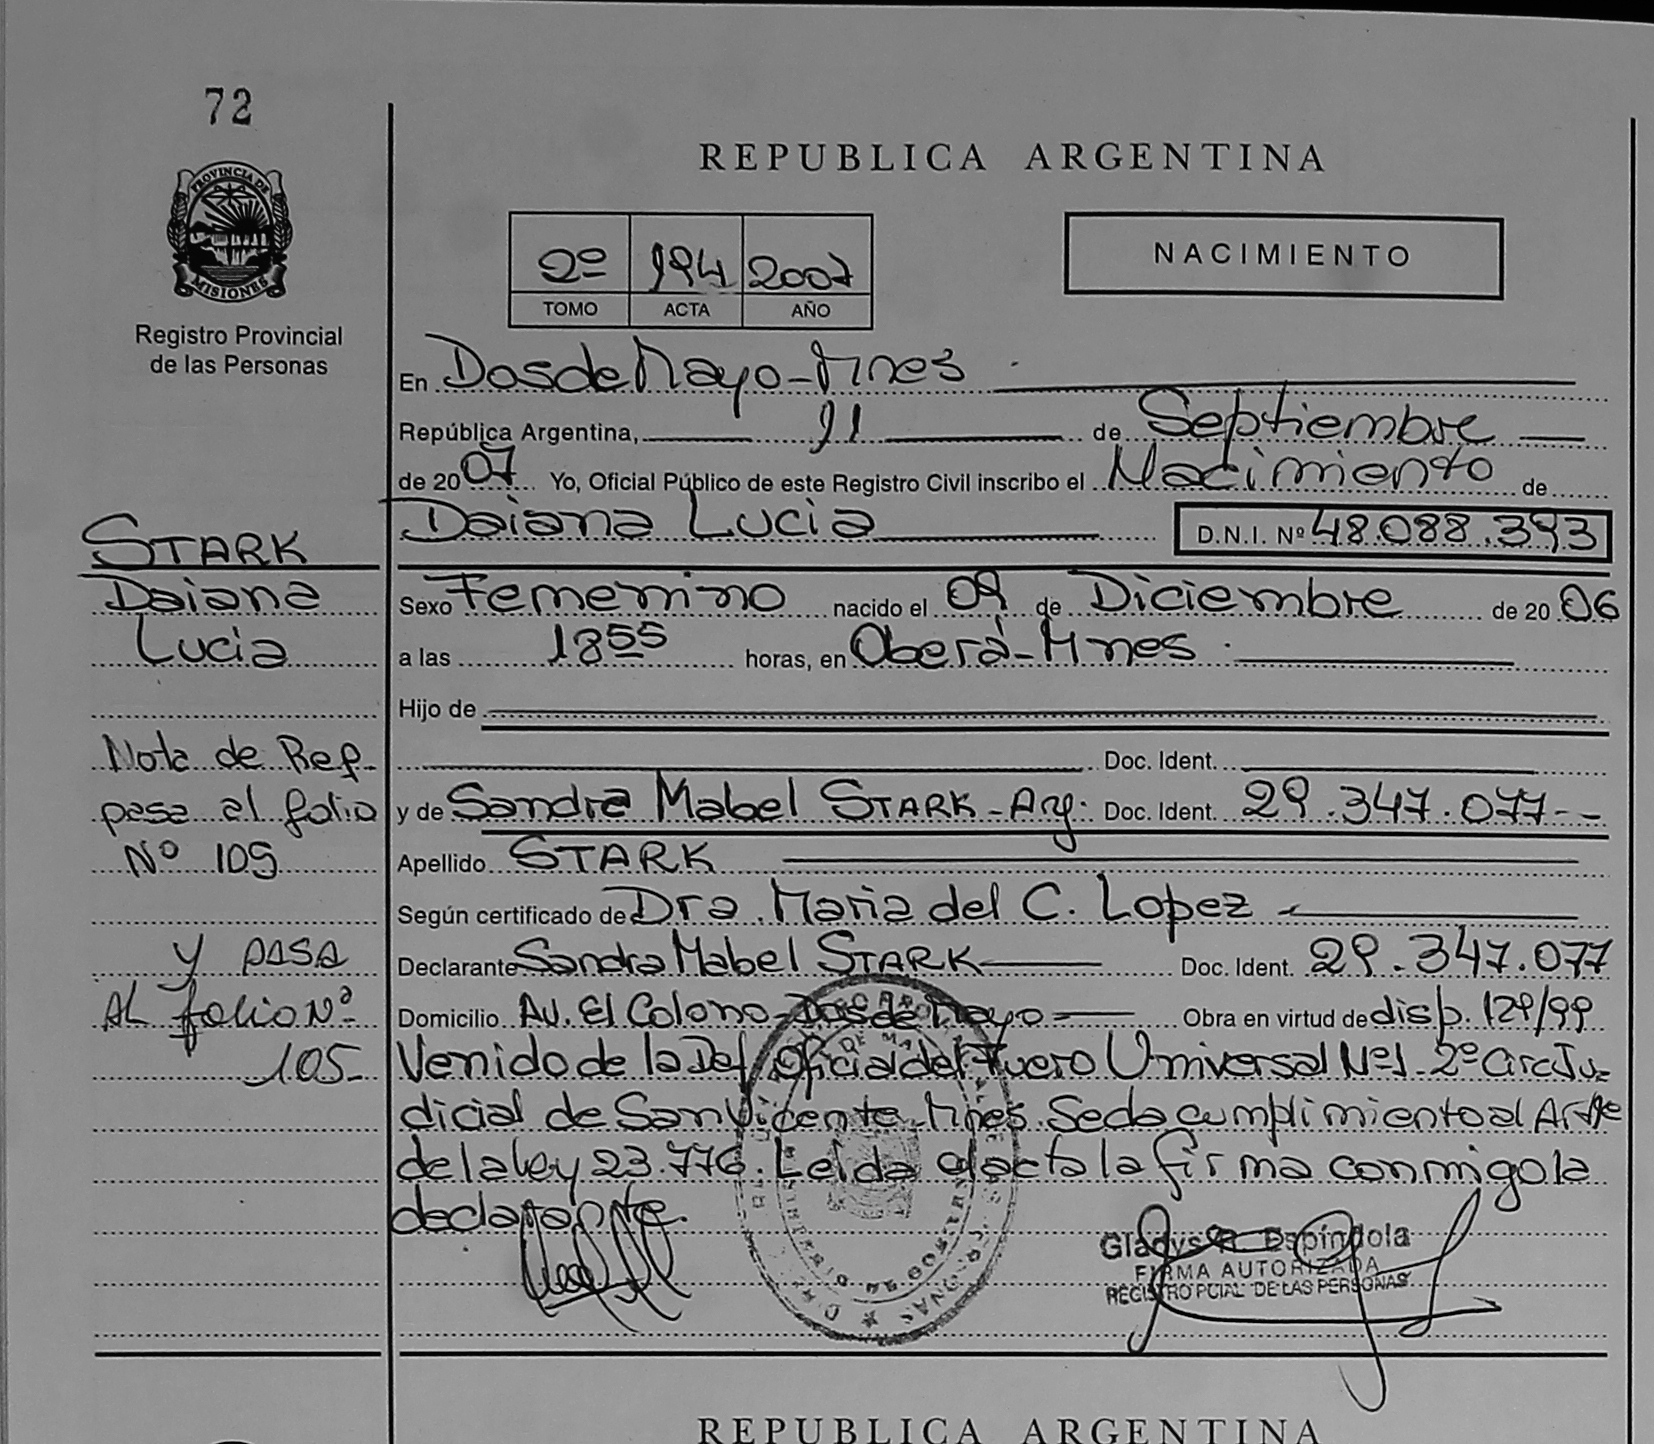 72
PROVINCIA DE
MISIONES
Registro Provincial
de las Personas
REPUBLICA ARGENTINA
2º 194 2007
TOMO ACTA AÑO
NACIMIENTO
En Dos de Mayo - Mnes
República Argentina, 11 de Septiembre
de 2007 Yo, Oficial Público de este Registro Civil inscribo el Nacimiento de
Daiana Lucia D.N.I. Nº 48.088.393
STARK
Daiana
Lucia
Sexo Femenino nacido el 09 de Diciembre de 2006
a las 18 55 horas, en Oberá - Mnes.
Hijo de
Doc. Ident.
y de Sandra Mabel STARK - Arg. Doc. Ident. 29.347.077--
Apellido STARK
Según certificado de Dra. Maria del C. Lopez
Declarante Sandra Mabel STARK Doc. Ident. 29.347.077
Domicilio Av. El Colono - Dos de Mayo Obra en virtud de disp. 129/99
Venido de la Def. Oficial del Fuero Universal Nº 1 - 2º Circ Ju-
dicial de San Vicente Mnes. Se da cumplimiento al Art
de la ley 23.776. Leida el acta la firma conmigo la
declarante.
Nota de Ref.
pasa al folio
Nº 105
y pasa
AL folio Nº
105-
Gladys Espindola
FIRMA AUTORIZADA
REGISTRO PCIAL DE LAS PERSONAS
REPUBLICA ARGENTINA